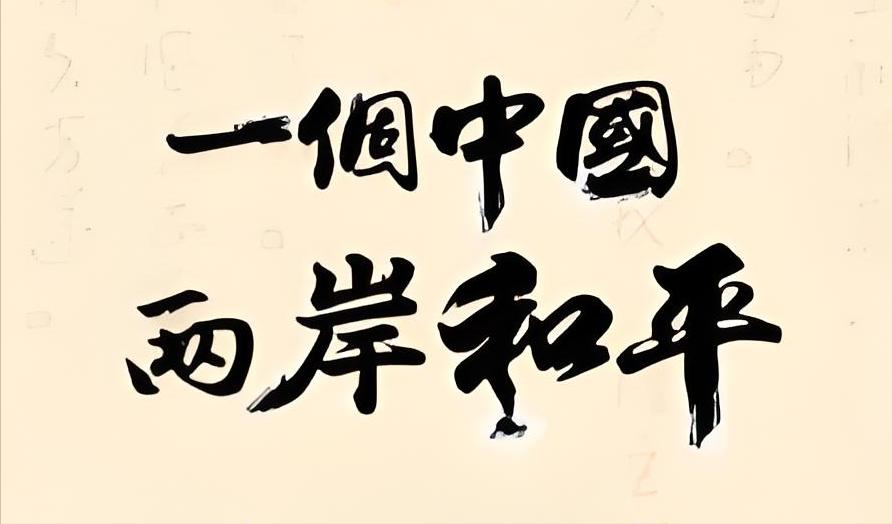 一個中國
兩岸和平